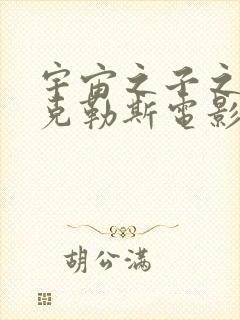 宇宙之子之
克勒斯電影
胡公滿